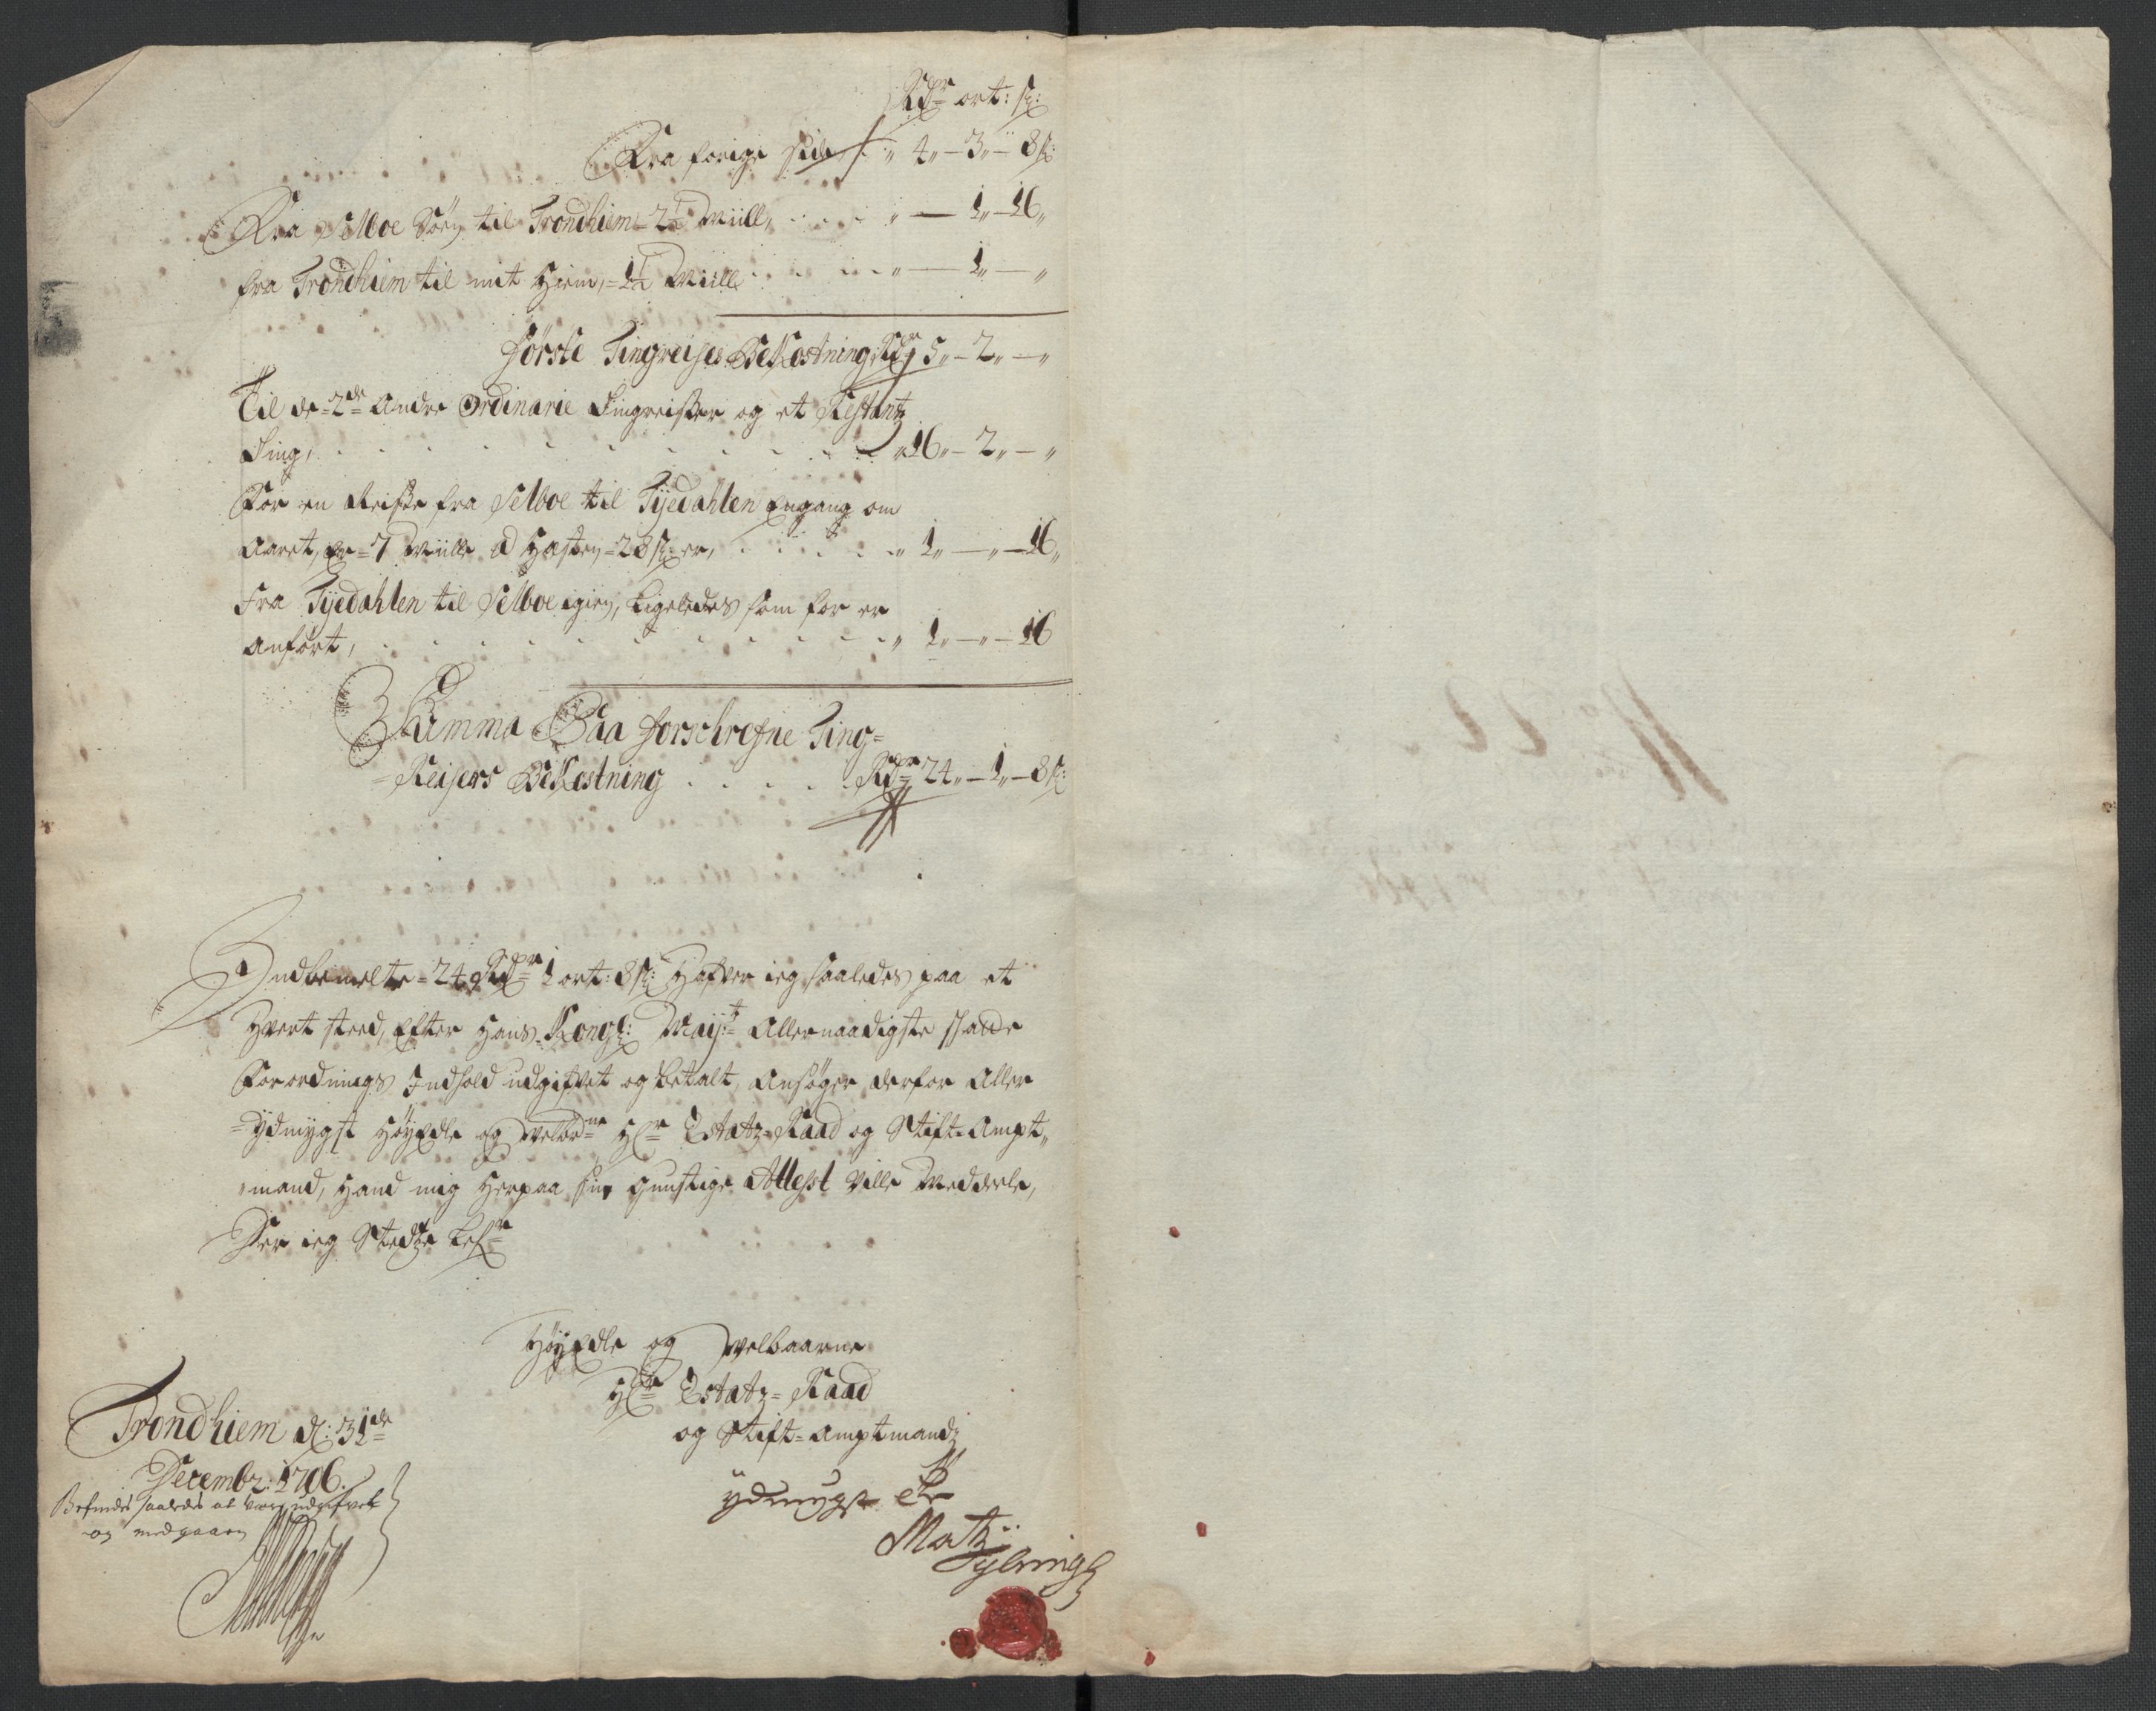 Rdr ort: s:
Fra forige side / 4 „ – 3 „ – 8 s:
Fra Selboe Søen til Trondhiem 2½ Miill, . . . „ — 1 „ – 16 „
fra Trondhiem til mit Hiem, = 1½ Miill . . . „ — 1 „ — „
første Tingreises Bekostning Rdr 5 „ – 2 „ — „
Til de = 2de andre Ordinarie Tingreiser og et Restantz
Ting, . . . „ 16 „ – 2 „ — „
For en Reise fra Selboe til Tyedahlen Engang om
Aaret, er = 7 Miille a Hesten = 28 s: er, . . . „ 1 „ — „ — 16 „
Fra Tyedahlen til Selboe igien, Ligeledes som for er
Anført, . . . „ 1 „ — „ — 16
Summa Paa forschrefne Ting =
= Reisers Bekostning . . . . . Rdr 24 „ – 1 „ – 8 s:
Indbemelte = 24 Rdr 1 ort: 8 s: Hafver ieg saaledes paa et
Hvert sted, Efter Hans Kongl: Mayts Allernaadigste
Forordnings Indhold udgifvet og betalt, Ansøger derfor Aller
= ydmygst HøyEdle og Velbrne Hr Estatz = Raad og Stift = Ampt „
„ mand, Hand mig Herpaa sin gunstige Attest Ville Meddele,
Der ieg Stedtze
HøyEdle og Velbaarne
Hr Estatz = Raad
og Stift = amptmandz
ydmygste
Matz
Trondhiem d: 31de
Decembr: 1706.
Befindes saaledes at være udgifvet
og medgaaen